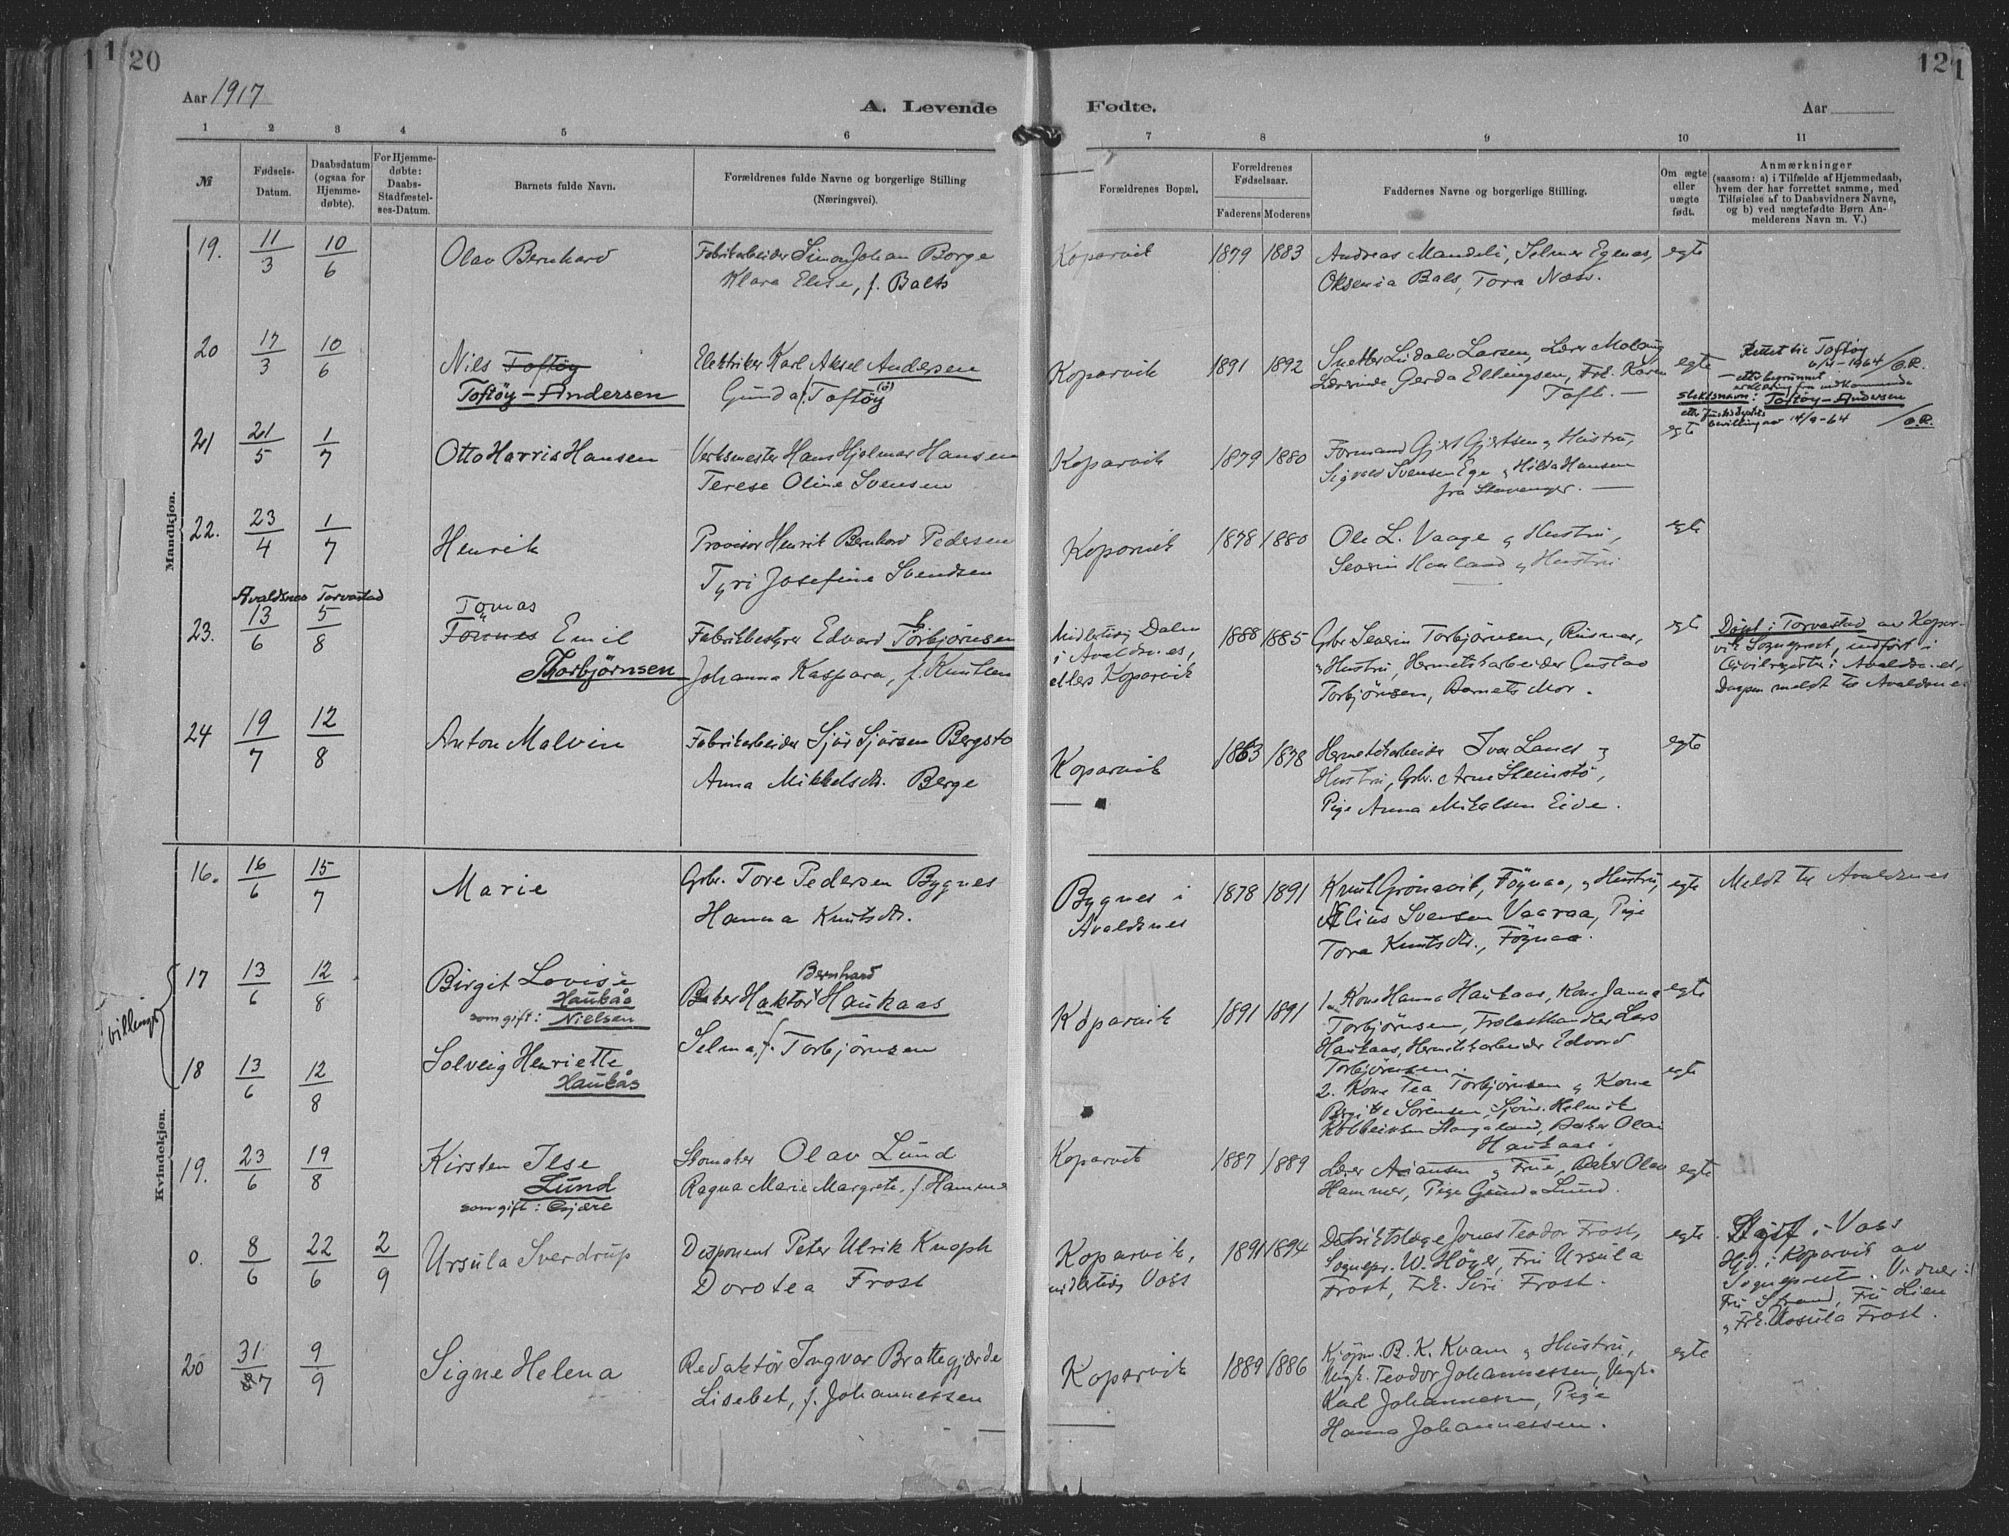 120
121
Aar 1917
A. Levende
Fødte.
Aar
1 2 3 4 5 6 7 8 9 10 11
№
Fødsels-
Datum.
Daabsdatum
(ogsaa for
Hjemme-
døbte).
For Hjemme-
døbte:
Daabs-
Stadfæstel-
ses-Datum.
Barnets fulde Navn.
Forældrenes fulde Navne og borgerlige Stilling
(Næringsvei).
Forældrenes Bopæl.
Forældrenes
Fødselsaar.
Faderens Moderens
Faddernes Navne og borgerlige Stilling.
Om ægte
eller
uægte
født.
Anmærkninger
(saasom: a) i Tilfælde af Hjemmedaab,
hvem der har forrettet samme, med
Tilføielse af to Daabsvidners Navne,
og b) ved uægtefødte Børn An-
melderens Navn m. V.)
Mandkjøn.
19. 11/3 10/6 Olav Bernhard
Fabrikarbeider Simon Johan Borge
Klara Elise, f. Balts
Koparvik 1879 1883
Andreas Mandeli, Selmer Egenes,
Oksenia Bals, Tora Næss.
egte
20 17/3 10/6 Nils Toftøy
Toftöy-Andersen
Elektriker Karl Aksel Andersen
Gunda f. Toftöy (ö)
Koparvik 1891 1892
Larsen, Lærer
Lærerinde Gerda Ellingsen, Frk. Karen
Toft. —
egte
Rettet til Toftöy
6/4-1964 / O.R.
slektsnavn: Toftöy-Andersen
bevilling av 14/9-64 / O.R.
21 21/5 1/7 Otto Harris Hansen
Verksmester Hans Hjalmar Hansen
Terese Oline Svensen
Koparvik 1879 1880
Formand Gjert Gjertsen og Hustru,
Sigvald Svensen Ege og Hilda Hansen
fra Stavanger. —
egte
22. 23/4 1/7 Henrik
Provisor Henrik Bernhard Pedersen
Tyri Josefine Svendsen
Koparvik 1878 1880
Ole L. Vaage og Hustru,
Severin Hauland og Hustru
egte
Avaldsnes Torvastad
23. 13/6 5/8 Tomas
Tönnes Emil
Thorbjørnsen
Fabrikbestyrer Edvard Torbjørnsen
Johanna Kaspara, f. Knutsen
Midlertidig Dalen
i Avaldsnes,
ellers Koparvik
1888 1885
Grbr. Severin Torbjörnsen, Risnes,
og Hustru, Hermetikarbeider Gustav
Torbjörnsen, Barnets Mor.
egte
Döpt i Torvastad av Kopar-
vik Sogneprest, indført i
Civilregister i Avaldsnes,
Daapen meldt til Avaldsnes
24 19/7 12/8 Anton Malvin
Fabrikarbeider Sjur Sjursen Bergstø
Anna Mikkelsdtr. Berge
Koparvik 1863 1878
Hermetikarbeider Ivar Lanes og
Hustru, Grbr. Arne Steinstö,
Pige Anna Mikalsen Eide.
egte
Kvindekjøn.
16. 16/6 15/7 Marie
Grbr. Tore Pedersen Bygnes
Hanna Knutsdtr.
Bygnes i
Avaldsnes
1878 1891
Knut Grönevik, Föynaa, og Hustru,
Elius Svensen Vaaraa, Pige
Tora Knutsdtr., Föynaa.
egte
Meldt til Avaldsnes
Tvillinger
17 13/6 12/8 Birgit Lovise
Haukås
som gift: Nielsen
18 13/6 12/8 Solveig Henriette
Haukås
Baker Haktor Bernhard Haukaas
Selma, f. Torbjörnsen
Koparvik 1891 1891
1. Kone Hanna Haukaas, Kone Janna
Torbjörnsen, Frelasthandler Lars
Haukaas, Hermetikarbeider Edvard
Torbjörnsen.
2. Kone Tea Torbjörnsen og Kone
Birgitte Sörensen, Sjöm. Helmik
Kolbeinsen Stangeland, Baker Olai
Haukaas.
egte
egte
19. 23/6 19/8 Kirsten Ilse
Lund
som gift: Gjære
Stomaker Olav Lund
Ragna Marie Margrete, f. Hammer
Koparvik 1887 1889
Lærer Asiansen og Frue, Baker Olav
Hammer, Pige Gunda Lund.
egte
0. 8/6 22/6 2/9 Ursula Sverdrup
Disponent Peter Ulrik Knoph
Dorotea Frost
Koparvik,
midlertidig Voss
1891 1894
Distriktslæge Jonas Teodor Frost,
Sognepr. W. Höyer, Fru Ursula
Frost, Frk. Siri Frost.
egte
Stadf. i Voss
Hjd. i Koparvik av
Sogneprest. Vidner:
Fru Strand, Fru Lien
og Frk. Ursula Frost.
20 31/7 9/9 Signe Helena
Redaktör Ingvar Brattegjerde
Lisebet, f. Johannessen
Koparvik 1889 1886
Kjöpm. B. K. Kvam og Hustru,
Ungk. Teodor Johannessen, Ungk.
Karl Johannessen, Pige
Hanna Johannessen.
egte